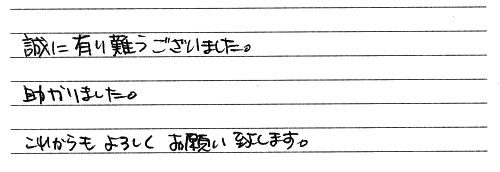 誠に有り難うございました。
助かりました。
これからもよろしくお願い致します。